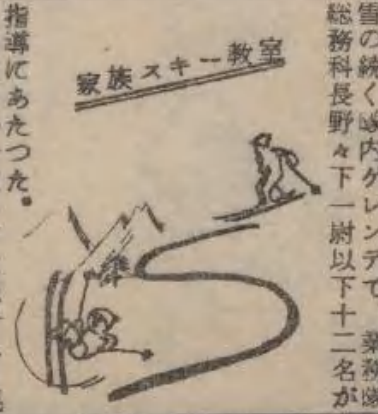 雪の続く営内ゲレンデで、業務隊
総務科長野々下一尉以下十二名が
家族スキー教室
指導にあたつた。